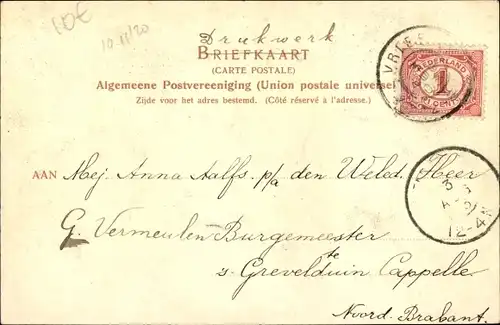 10€
10-11/20
Drukwerk
BRIEFKAART
(CARTE POSTALE)
Algemeene Postvereeniging (Union postale universelle)
Zijde voor het adres bestemd. (Côté réservé à l'adresse.)
NEDERLAND
1
CENT
AAN Mej. Anna Aalfs. p/a den Weled. Heer
G. Vermeulen Burgemeester
te
s. Grevelduin Cappelle
Noord. Brabant.
12-4N